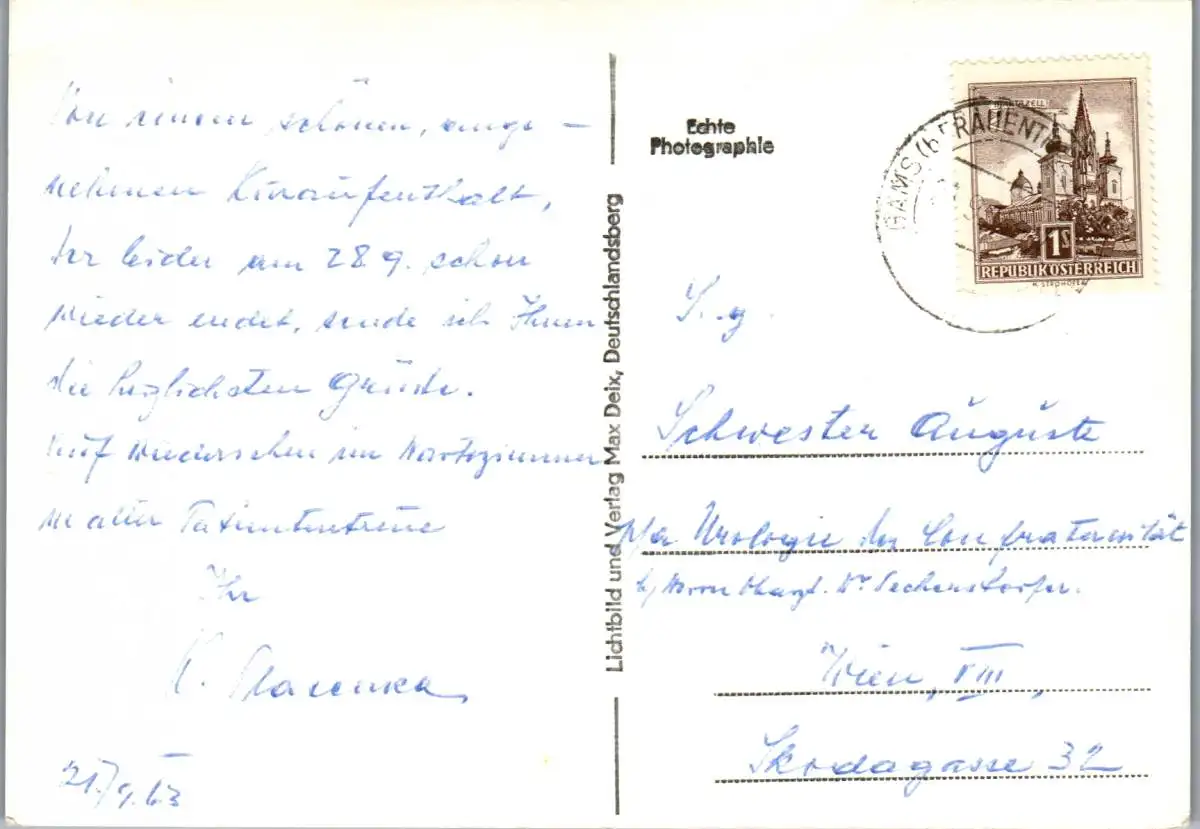 Von einem schönen, ange –
nehmen Kuraufenthalt,
der leider am 28.9. schon
wieder endet, sende ich Ihnen
die herzlichsten Grüsse.
Auf Wiedersehen im Wartezimmer
in alter Patiententreue
Ihr
K.
21./9.63
Lichtbild und Verlag Max Deix, Deutschlandsberg
Echte
Photographie
GAMS (b. FRAUENT
MARIAZELL
1S
REPUBLIK ÖSTERREICH
S. g.
Schwester Auguste
p/a Urologie der Confraternität
b/ Herrn Obarzt. Dr.
Wien, VIII,
Skodagasse 32